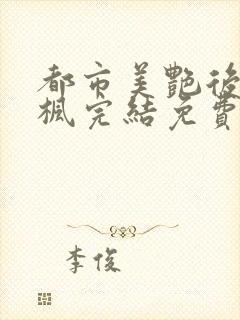 都市美艷後
楓完結免費
李俊